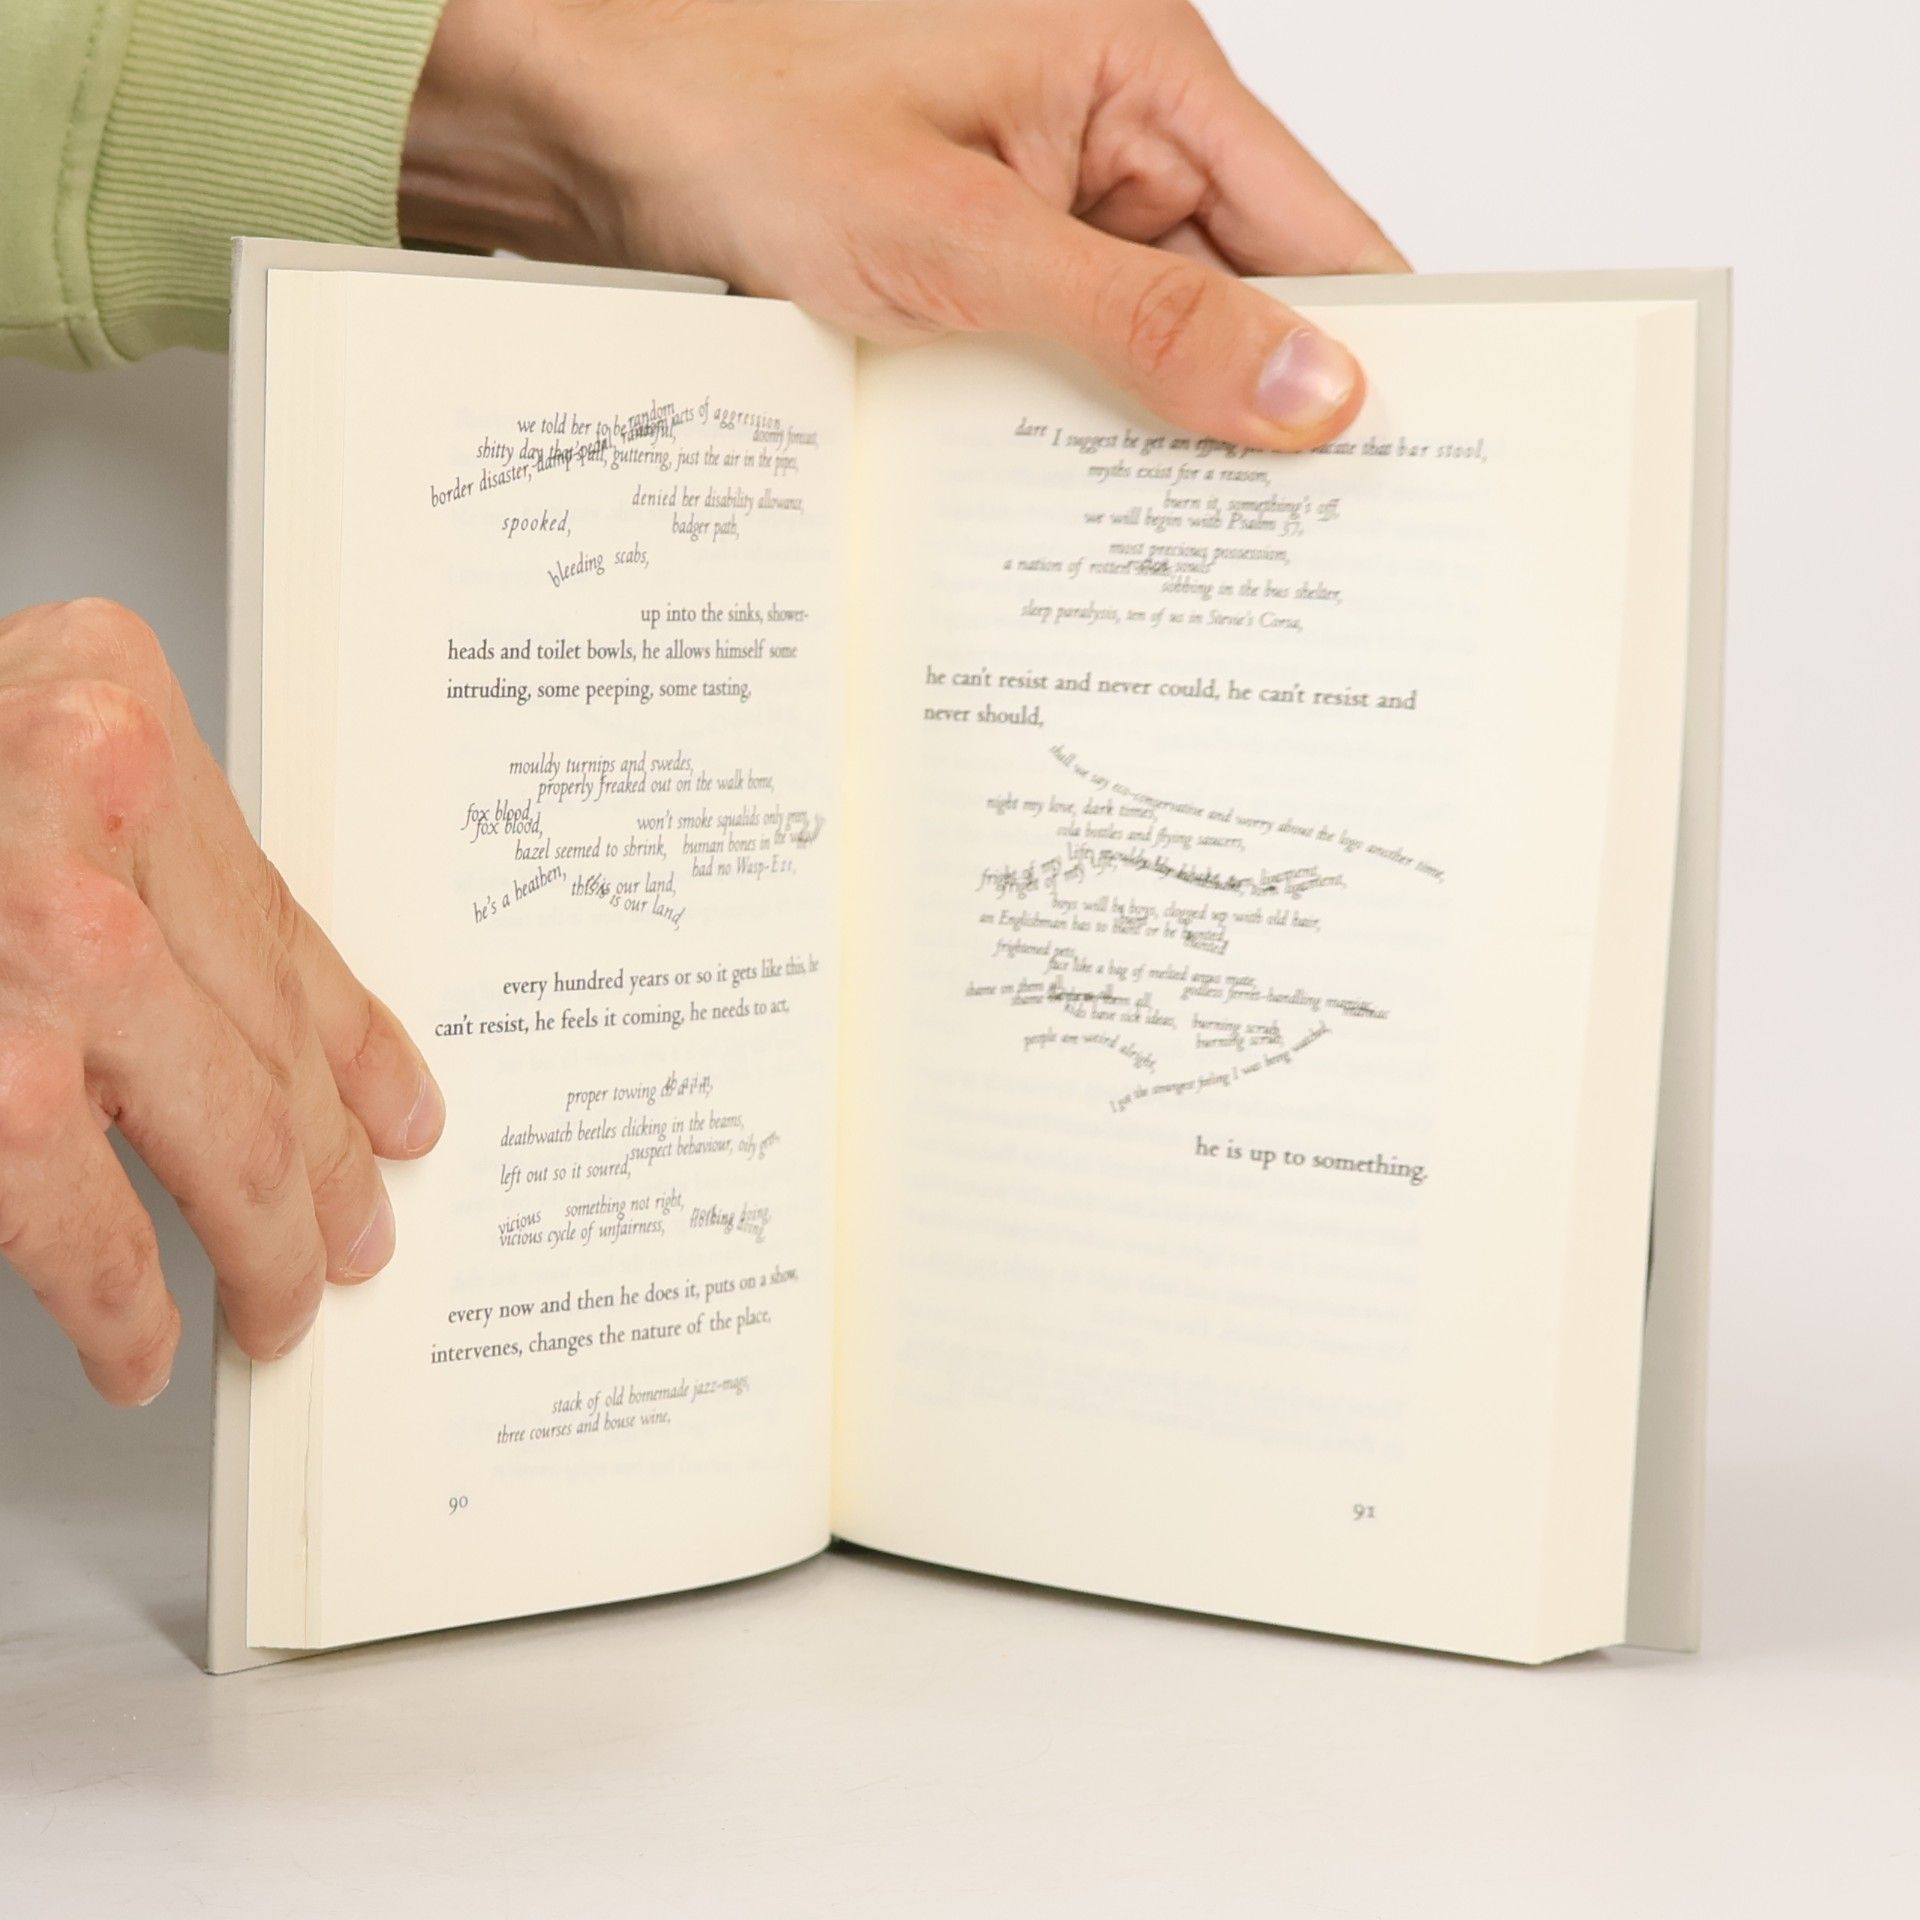 we told her to be careful,
random acts of aggression
doomy forecast,
shitty day that's
guttering, just the air in the pipes,
border disaster, damp
denied her disability allowance,
spooked,
badger path,
bleeding scabs,
up into the sinks, shower-
heads and toilet bowls, he allows himself some
intruding, some peeping, some tasting,
mouldy turnips and swedes,
properly freaked out on the walk home,
fox blood,
fox blood,
won't smoke squalids only green,
hazel seemed to shrink,
human bones in the
had no Wasp-Eze,
he's a heathen,
this is our land,
this is our land,
every hundred years or so it gets like this, he
can't resist, he feels it coming, he needs to act,
proper towing chain,
deathwatch beetles clicking in the beams,
suspect behaviour, oily
left out so it soured,
something not right,
vicious
vicious cycle of unfairness,
nothing doing,
doing,
every now and then he does it, puts on a show,
intervenes, changes the nature of the place,
stack of old homemade jazz-mags,
three courses and house wine,
90
dare I suggest he get an effing vacate that bar stool,
myths exist for a reason,
burn it, something's off,
we will begin with Psalm 37,
most precious possession,
a nation of rotten souls
sobbing in the bus shelter,
sleep paralysis, ten of us in Stevie's Corsa,
he can't resist and never could, he can't resist and
never should,
shall we say eco-conservative and worry about the logo another time,
night my love, dark times,
cola bottles and flying saucers,
fright of my life,
fright of my life,
torn ligament,
torn ligament,
boys will be boys, clogged up with old hair,
an Englishman has to hunt or be hunted,
hunted
frightened pets,
face like a bag of melted
godless ferret-handling maniac
maniac
shame on them all,
shame on them all,
kids have sick ideas,
burning scrub,
burning scrub,
people are weird alright,
I got the strangest feeling I was being watched,
he is up to something.
91